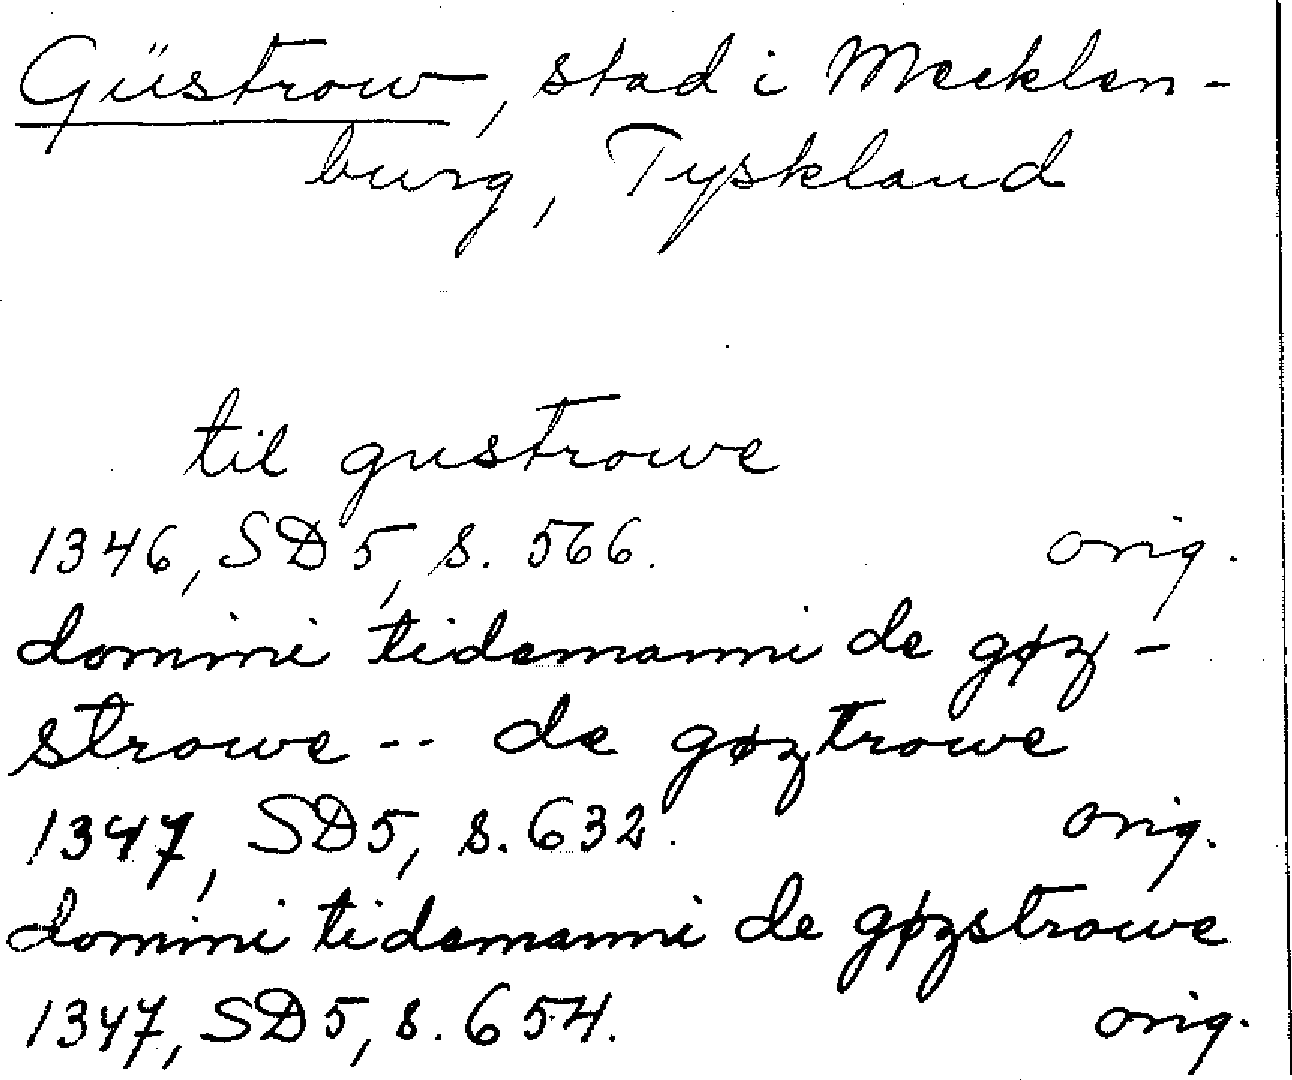 Güstrow, stad i Mecklen-
burg, Tyskland
til gustrowe
1346, SD 5, s. 566. orig.
domini tidemanni de gøz-
strowe -- de gøztrowe
1347, SD 5, s. 632. orig.
domini tidemanni de gøzstrowe
1347, SD 5, s. 654. orig.